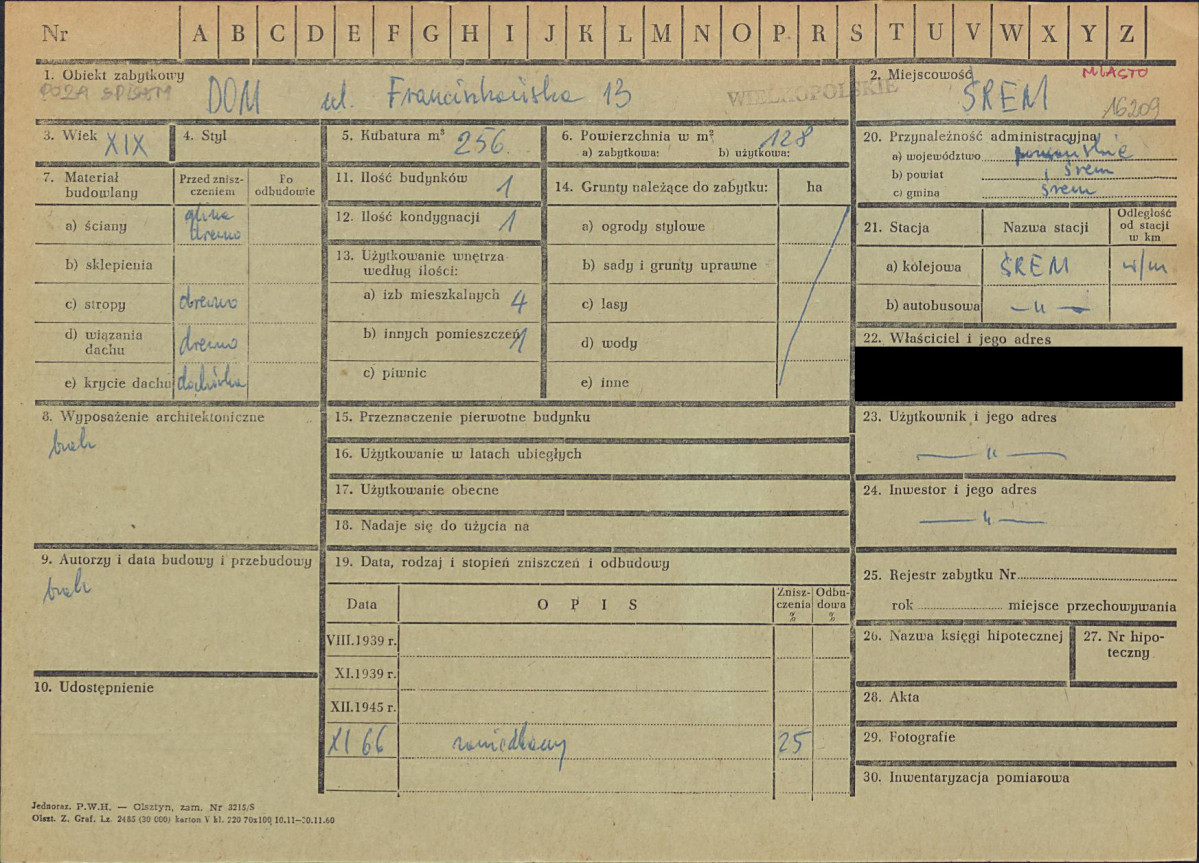 Nr A B C D E F G H I J K L M N O P R S T U V W X Y Z
1. Obiekt zabytkowy
POZA SPISEM
DOM ul. Franciszkańska 13
WIELKOPOLSKIE
2. Miejscowość
MIASTO
ŚREM
16209
3. Wiek XIX
4. Styl
5. Kubatura m³ 256.
6. Powierzchnia w m² 128
a) zabytkowa: b) użytkowa:
7. Materiał budowlany
Przed zniszczeniem
Po odbudowie
a) ściany glina drewno
b) sklepienia
c) stropy drewno
d) wiązania dachu drewno
e) krycie dachu dachówka
8. Wyposażenie architektoniczne
brak
9. Autorzy i data budowy i przebudowy
brak
10. Udostępnienie
11. Ilość budynków 1
12. Ilość kondygnacji 1
13. Użytkowanie wnętrza według ilości:
a) izb mieszkalnych 4
b) innych pomieszczeń 1
c) piwnic
14. Grunty należące do zabytku: ha
a) ogrody stylowe
b) sady i grunty uprawne
c) lasy
d) wody
e) inne
15. Przeznaczenie pierwotne budynku
16. Użytkowanie w latach ubiegłych
17. Użytkowanie obecne
18. Nadaje się do użycia na
19. Data, rodzaj i stopień zniszczeń i odbudowy
Data O P I S Zniszczenia % Odbudowa %
VIII.1939 r.
XI.1939 r.
XII.1945 r.
XI 66 25
20. Przynależność administracyjna
a) województwo poznańskie
b) powiat Śrem
c) gmina Śrem
21. Stacja Nazwa stacji Odległość od stacji w km
a) kolejowa ŚREM w/m
b) autobusowa —„—
22. Właściciel i jego adres
23. Użytkownik i jego adres
—„—
24. Inwestor i jego adres
—„—
25. Rejestr zabytku Nr
rok miejsce przechowywania
26. Nazwa księgi hipotecznej
27. Nr hipoteczny
28. Akta
29. Fotografie
30. Inwentaryzacja pomiarowa
Jednoraz. P.W.H. — Olsztyn, zam. Nr 3215/S
Olszt. Z. Graf. Lz. 2485 (30 000) karton V kl. 220 70x100 10.11—30.11.60